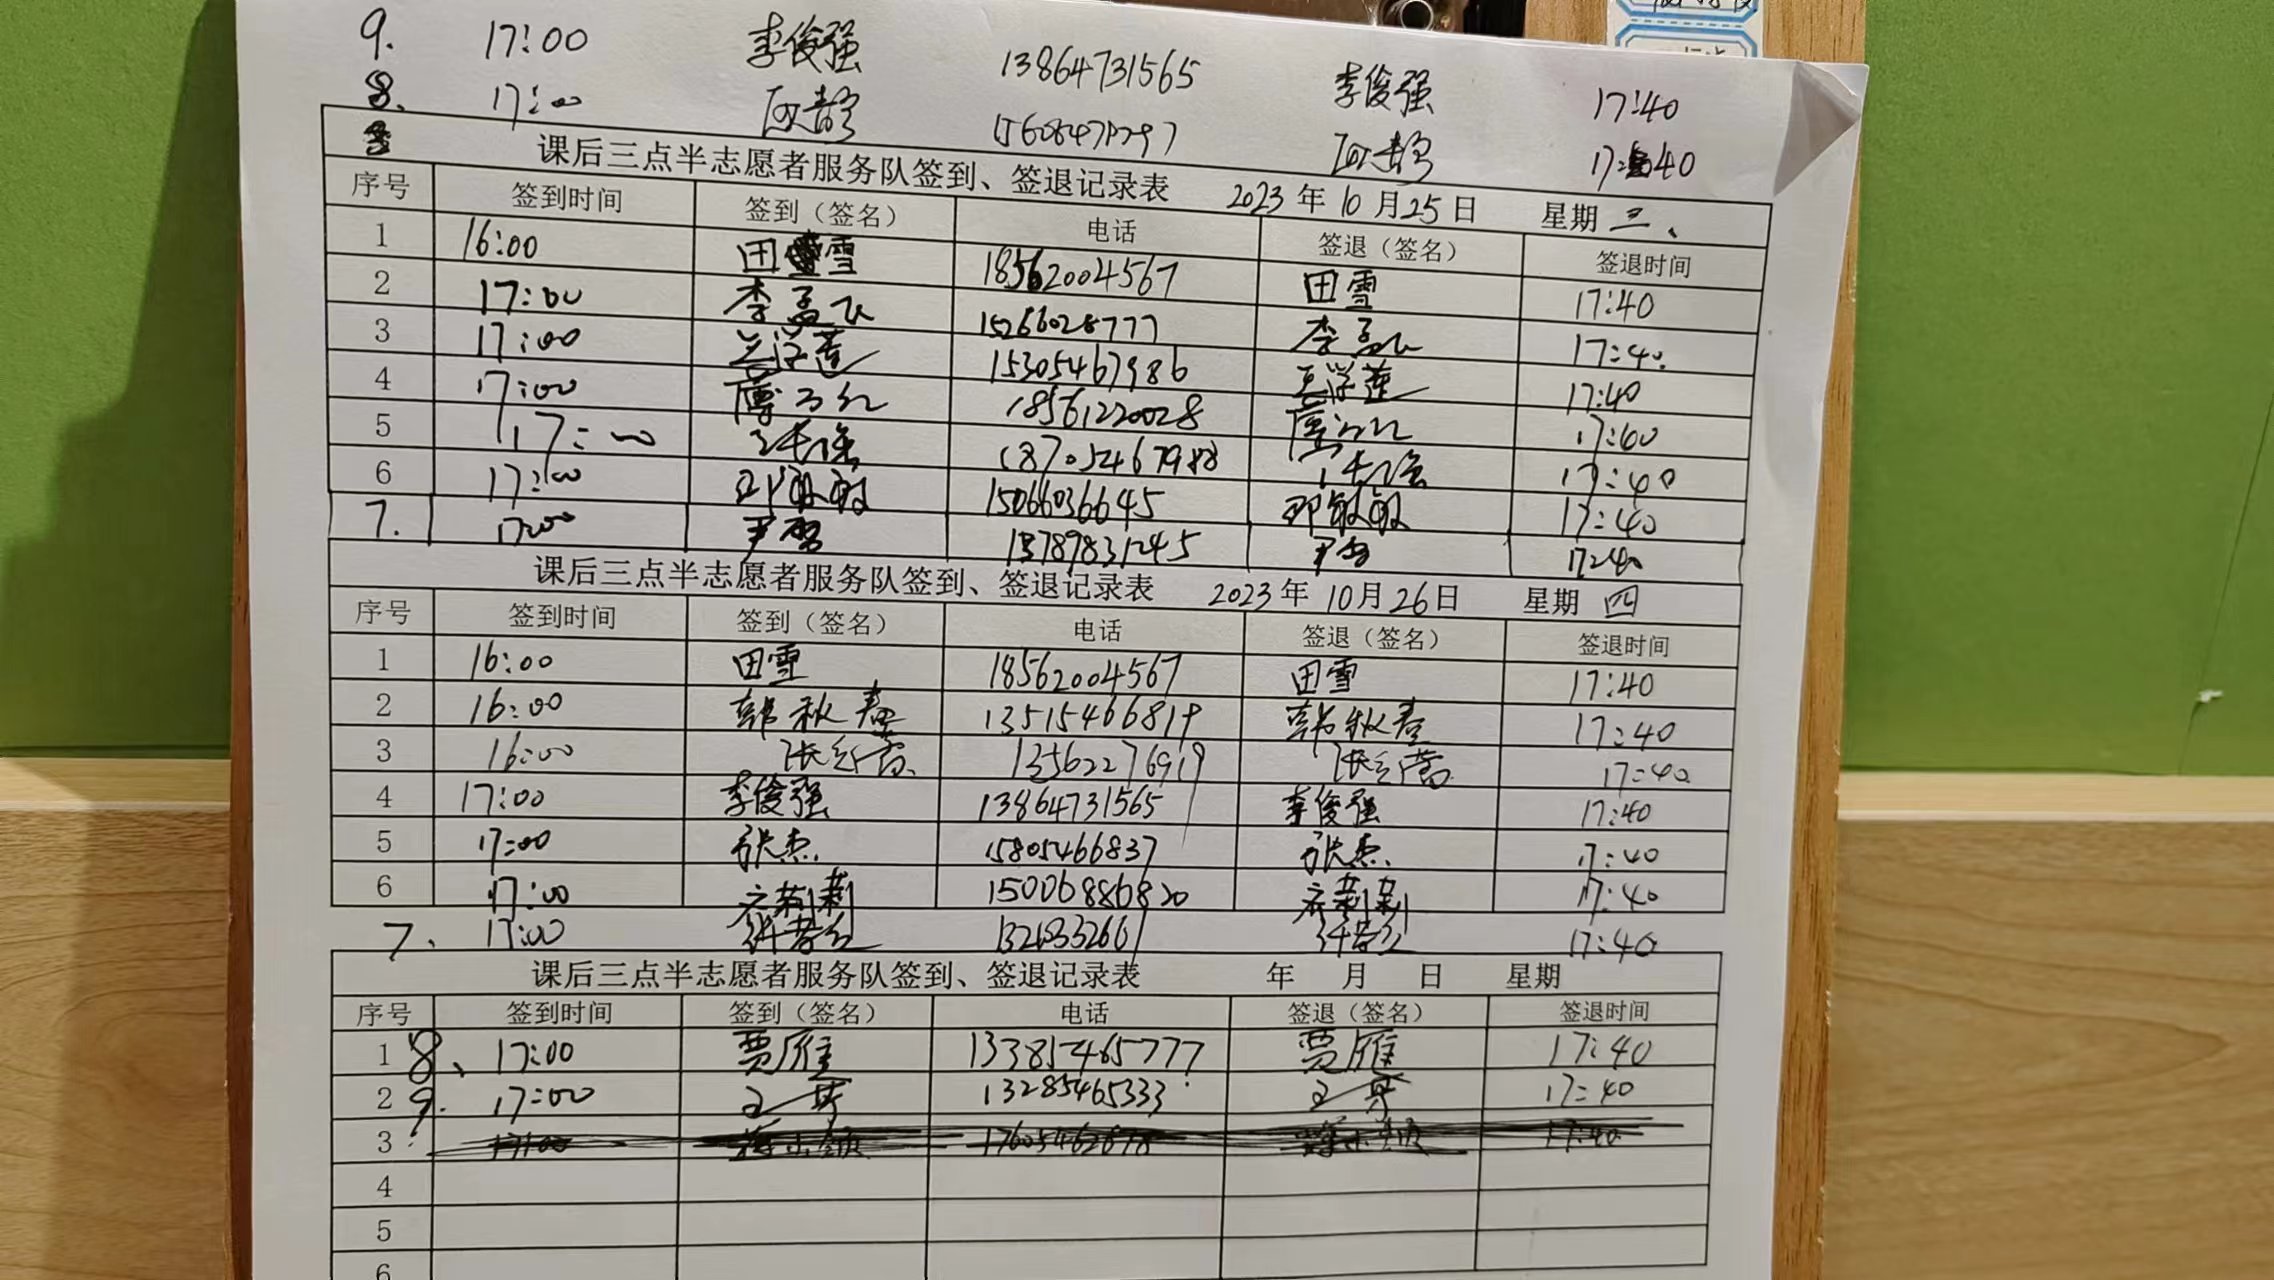 9. 17:00 李俊强 13864731565 李俊强 17:40
8. 17:00 17:40
课后三点半志愿者服务队签到、签退记录表 2023年10月25日 星期三、
序号 签到时间 签到（签名） 电话 签退（签名） 签退时间
1 16:00 田雪 18562004567 田雪 17:40
2 17:00 李孟飞 15266028777 李孟飞 17:40.
3 17:00 15305467986 17:40
4 17:00 18561220028
5 17:00 18705467988 17:40
6 17:00 邓敏敏 15066036645 邓敏敏 17:40
7. 17:00 尹雪 13789831245 尹雪 17:40
课后三点半志愿者服务队签到、签退记录表 2023年10月26日 星期四
序号 签到时间 签到（签名） 电话 签退（签名） 签退时间
1 16:00 田雪 18562004567 田雪 17:40
2 16:00 韩秋春 13515466819 韩秋春 17:40
3 16:00 13562276919 17:40
4 17:00 李俊强 13864731565 李俊强 17:40
5 17:00 张杰 15805466837 张杰 17:40
6 17:00 齐莉莉 15006886820 齐莉莉 17:40
7. 17:00 17:40
课后三点半志愿者服务队签到、签退记录表 年 月 日 星期
序号 签到时间 签到（签名） 电话 签退（签名） 签退时间
1 8、 17:00 贾雁 13385465777 贾雁 17:40
2 9. 17:00 13285465333 17:40
3
4
5
6